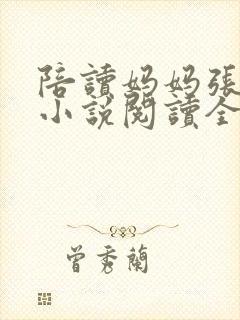 陪讀媽媽張
小說閱讀全
曾秀蘭